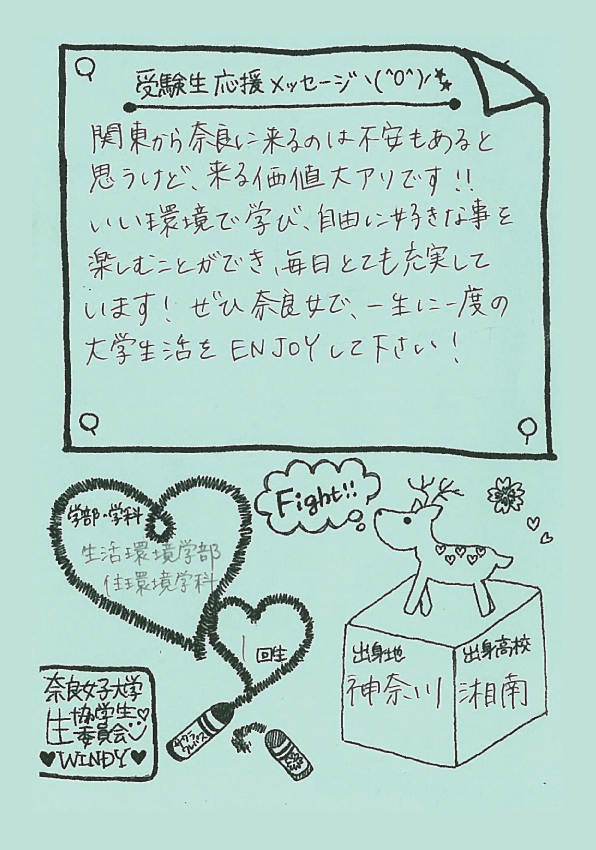 受験生応援メッセージヽ(^0^)ノ
関東から奈良に来るのは不安もあると
思うけど、来る価値大アリです!!
いい環境で学び、自由に好きな事を
楽しむことができ、毎日とても充実して
います！ぜひ奈良女で、一生に一度の
大学生活をENJOYして下さい！
Fight!!
学部・学科
生活環境学部
住環境学科
1回生
出身地
神奈川
出身高校
湘南
奈良女子大学
生協学生
委員会
♥WINDY♥
サクラ
クレパス